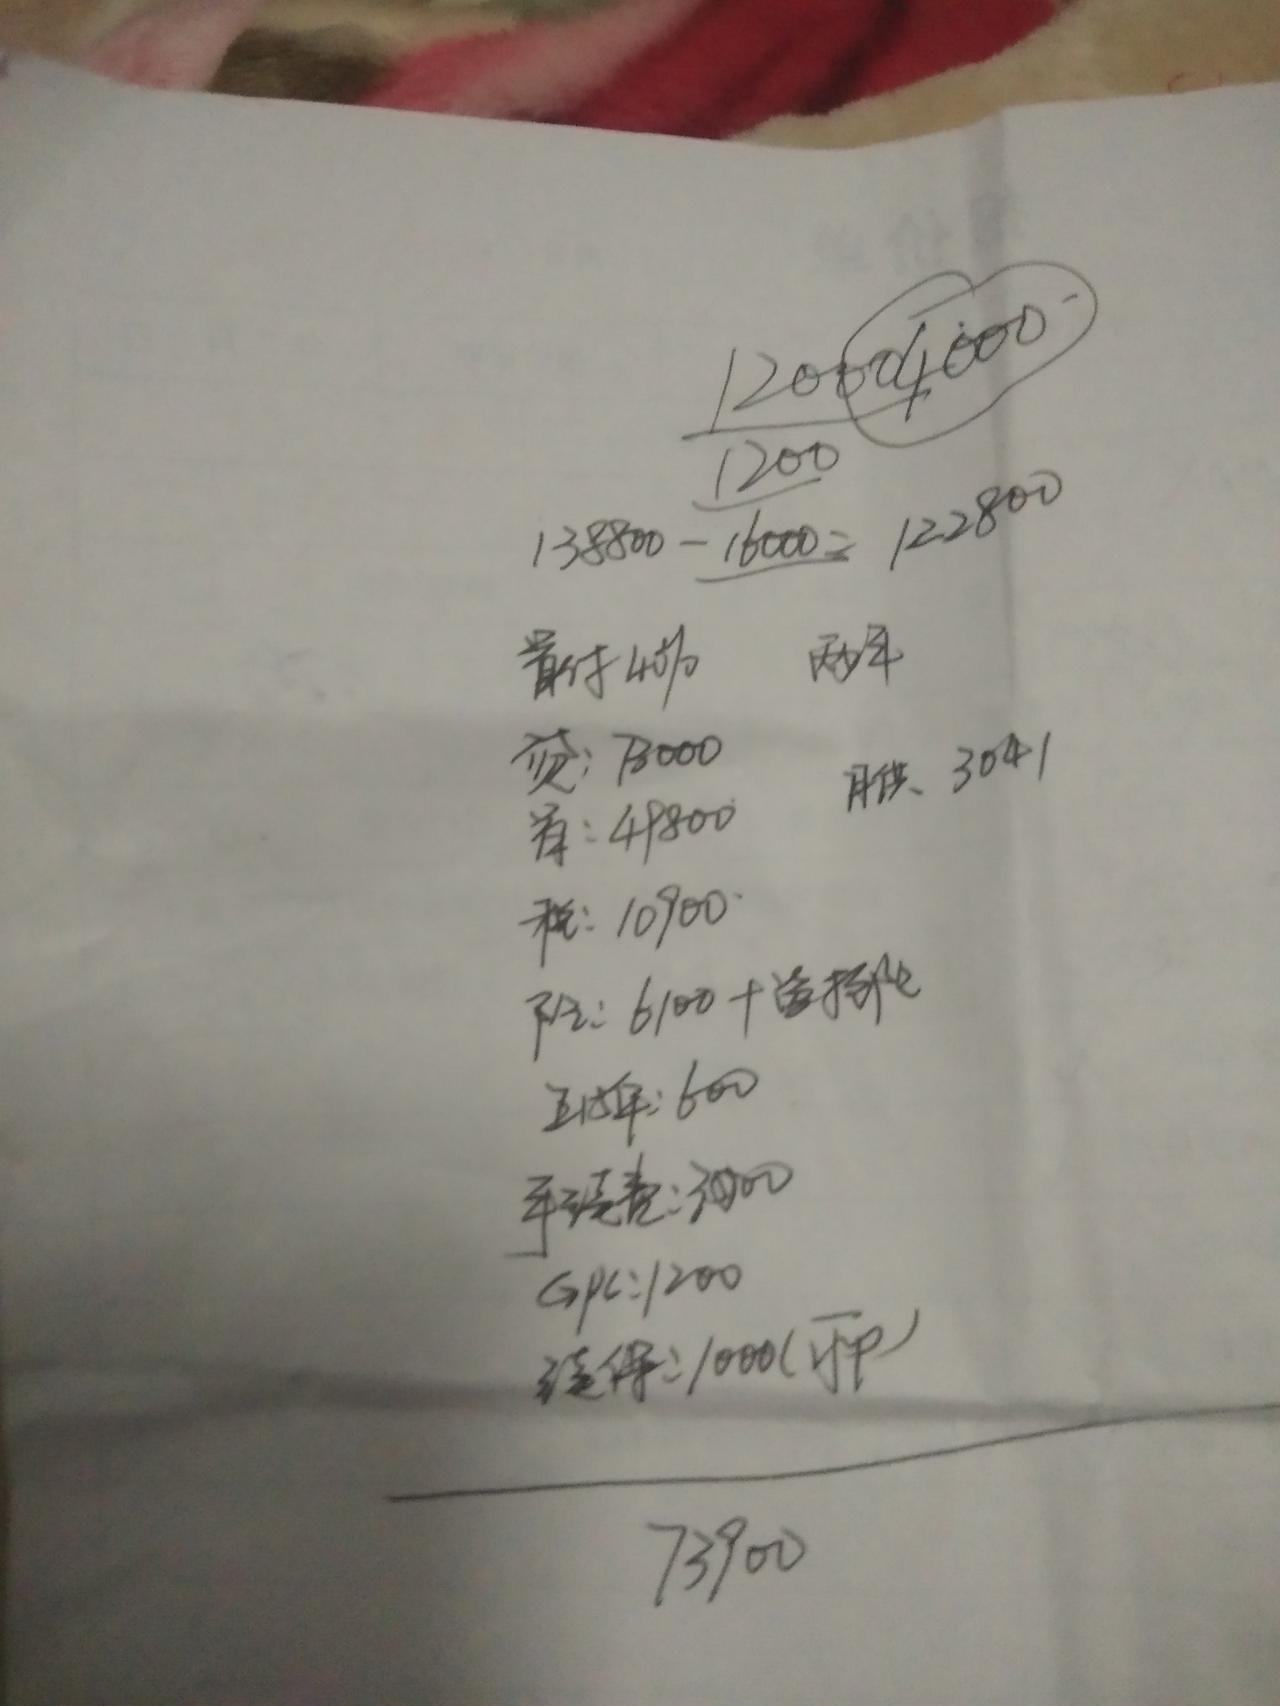 12000 4000
1200
138800-16000=122800
首付40% 两年
贷:73000
月供、3041
首:49800
税:10900
险:6100+
上牌:600
手续费:3900
GPS:1200
续保:1000(可P)
73900